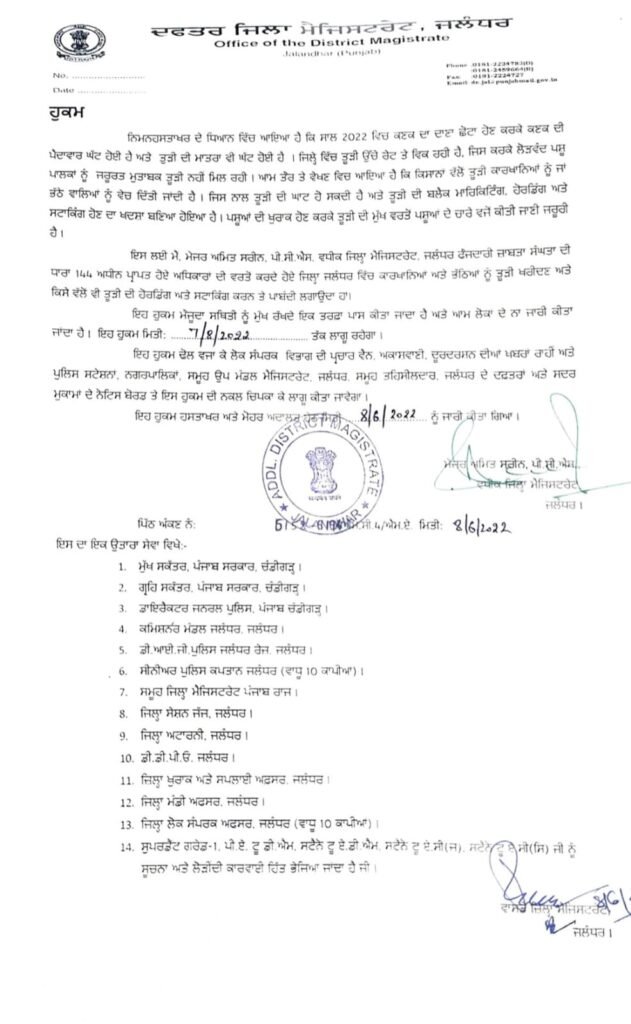 ਦਫਤਰ ਜਿਲਾ ਮੈਜਿਸਟਰੇਟ, ਜਲੰਧਰ
Office of the District Magistrate
Jalandhar (Punjab)
No. ........................
Date ......................
Phone :0181-2224783(O)
:0181-2459664(R)
Fax :0181-2224727
Email dc.jal@punjabmail.gov.in
ਹੁਕਮ
ਨਿਮਨਹਸਤਾਖਰ ਦੇ ਧਿਆਨ ਵਿੱਚ ਆਇਆ ਹੈ ਕਿ ਸਾਲ 2022 ਵਿਚ ਕਣਕ ਦਾ ਦਾਣਾ ਛੋਟਾ ਹੋਣ ਕਰਕੇ ਕਣਕ ਦੀ
ਪੈਦਾਵਾਰ ਘੱਟ ਹੋਈ ਹੈ ਅਤੇ ਤੂੜੀ ਦੀ ਮਾਤਰਾ ਵੀ ਘੱਟ ਹੋਈ ਹੈ । ਜਿਲ੍ਹੇ ਵਿੱਚ ਤੂੜੀ ਉੱਚੇ ਰੇਟ ਤੇ ਵਿਕ ਰਹੀ ਹੈ, ਜਿਸ ਕਰਕੇ ਲੋੜਵੰਦ ਪਸ਼ੂ
ਪਾਲਕਾਂ ਨੂੰ ਜਰੂਰਤ ਮੁਤਾਬਕ ਤੂੜੀ ਨਹੀਂ ਮਿਲ ਰਹੀ । ਆਮ ਤੌਰ ਤੇ ਵੇਖਣ ਵਿਚ ਆਇਆ ਹੈ ਕਿ ਕਿਸਾਨਾਂ ਵੱਲੋਂ ਤੂੜੀ ਕਾਰਖਾਨਿਆਂ ਨੂੰ ਜਾਂ
ਭੱਠੇ ਵਾਲਿਆਂ ਨੂੰ ਵੇਚ ਦਿੱਤੀ ਜਾਂਦੀ ਹੈ । ਜਿਸ ਨਾਲ ਤੂੜੀ ਦੀ ਘਾਟ ਹੋ ਸਕਦੀ ਹੈ ਅਤੇ ਤੂੜੀ ਦੀ ਬਲੈਕ ਮਾਰਿਕਿਟਿੰਗ, ਹੋਰਡਿੰਗ ਅਤੇ
ਸਟਾਕਿੰਗ ਹੋਣ ਦਾ ਖਦਸ਼ਾ ਬਣਿਆ ਹੋਇਆ ਹੈ । ਪਸ਼ੂਆਂ ਦੀ ਖੁਰਾਕ ਹੋਣ ਕਰਕੇ ਤੂੜੀ ਦੀ ਮੁੱਖ ਵਰਤੋਂ ਪਸ਼ੂਆਂ ਦੇ ਚਾਰੇ ਵਜੋਂ ਕੀਤੀ ਜਾਣੀ ਜਰੂਰੀ
ਹੈ ।
ਇਸ ਲਈ ਮੈਂ, ਮੇਜਰ ਅਮਿਤ ਸਰੀਨ, ਪੀ.ਸੀ.ਐਸ. ਵਧੀਕ ਜਿਲ੍ਹਾ ਮੈਜਿਸਟਰੇਟ, ਜਲੰਧਰ ਫੌਜਦਾਰੀ ਜ਼ਾਬਤਾ ਸੰਘਤਾ ਦੀ
ਧਾਰਾ 144 ਅਧੀਨ ਪ੍ਰਾਪਤ ਹੋਏ ਅਧਿਕਾਰਾਂ ਦੀ ਵਰਤੋਂ ਕਰਦੇ ਹੋਏ ਜਿਲ੍ਹਾ ਜਲੰਧਰ ਵਿੱਚ ਕਾਰਖਾਨਿਆਂ ਅਤੇ ਭੱਠਿਆਂ ਨੂੰ ਤੂੜੀ ਖਰੀਦਣ ਅਤੇ
ਕਿਸੇ ਵੱਲੋਂ ਵੀ ਤੂੜੀ ਦੀ ਹੋਰਡਿੰਗ ਅਤੇ ਸਟਾਕਿੰਗ ਕਰਨ ਤੇ ਪਾਬੰਦੀ ਲਗਾਉਂਦਾ ਹਾਂ।
ਇਹ ਹੁਕਮ ਮੌਜੂਦਾ ਸਥਿਤੀ ਨੂੰ ਮੁੱਖ ਰੱਖਦੇ ਇਕ ਤਰਫਾ ਪਾਸ ਕੀਤਾ ਜਾਂਦਾ ਹੈ ਅਤੇ ਆਮ ਲੋਕਾਂ ਦੇ ਨਾਂ ਜਾਰੀ ਕੀਤਾ
ਜਾਂਦਾ ਹੈ। ਇਹ ਹੁਕਮ ਮਿਤੀ: ......7/8/2022...................... ਤੱਕ ਲਾਗੂ ਰਹੇਗਾ ।
ਇਹ ਹੁਕਮ ਢੋਲ ਵਜਾ ਕੇ ਲੋਕ ਸੰਪਰਕ ਵਿਭਾਗ ਦੀ ਪ੍ਰਚਾਰ ਵੈਨ, ਅਕਾਸ਼ਵਾਣੀ, ਦੂਰਦਰਸ਼ਨ ਦੀਆਂ ਖਬਰਾਂ ਰਾਹੀਂ ਅਤੇ
ਪੁਲਿਸ ਸਟੇਸ਼ਨਾਂ, ਨਗਰਪਾਲਿਕਾਂ, ਸਮੂਹ ਉਪ ਮੰਡਲ ਮੈਜਿਸਟਰੇਟ, ਜਲੰਧਰ, ਸਮੂਹ ਤਹਿਸੀਲਦਾਰ, ਜਲੰਧਰ ਦੇ ਦਫਤਰਾਂ ਅਤੇ ਸਦਰ
ਮੁਕਾਮਾਂ ਦੇ ਨੋਟਿਸ ਬੋਰਡ ਤੇ ਇਸ ਹੁਕਮ ਦੀ ਨਕਲ ਚਿਪਕਾ ਕੇ ਲਾਗੂ ਕੀਤਾ ਜਾਵੇਗਾ ।
ਇਹ ਹੁਕਮ ਹਸਤਾਖਰ ਅਤੇ ਮੋਹਰ ਅਦਾਲਤ ਹੇਠ ਮਿਤੀ .....8/6/2022..... ਨੂੰ ਜਾਰੀ ਕੀਤਾ ਗਿਆ ।
ADDL. DISTRICT MAGISTRATE
JALANDHAR
ਮੇਜਰ ਅਮਿਤ ਸਰੀਨ, ਪੀ.ਸੀ.ਐਸ.,
ਵਧੀਕ ਜਿਲ੍ਹਾ ਮੈਜਿਸਟਰੇਟ,
ਜਲੰਧਰ ।
ਪਿੱਠ ਅੰਕਣ ਨੰ: ਐਮ.ਸੀ.4/ਐਮ.ਏ. ਮਿਤੀ: 8/6/2022
ਇਸ ਦਾ ਇਕ ਉਤਾਰਾ ਸੇਵਾ ਵਿਖੇ:-
1. ਮੁੱਖ ਸਕੱਤਰ, ਪੰਜਾਬ ਸਰਕਾਰ, ਚੰਡੀਗੜ੍ਹ ।
2. ਗ੍ਰਹਿ ਸਕੱਤਰ, ਪੰਜਾਬ ਸਰਕਾਰ, ਚੰਡੀਗੜ੍ਹ ।
3. ਡਾਇਰੈਕਟਰ ਜਨਰਲ ਪੁਲਿਸ, ਪੰਜਾਬ ਚੰਡੀਗੜ੍ਹ ।
4. ਕਮਿਸ਼ਨਰ ਮੰਡਲ ਜਲੰਧਰ, ਜਲੰਧਰ ।
5. ਡੀ.ਆਈ.ਜੀ.ਪੁਲਿਸ ਜਲੰਧਰ ਰੇਂਜ, ਜਲੰਧਰ ।
6. ਸੀਨੀਅਰ ਪੁਲਿਸ ਕਪਤਾਨ ਜਲੰਧਰ (ਵਾਧੂ 10 ਕਾਪੀਆਂ) ।
7. ਸਮੂਹ ਜਿਲ੍ਹਾ ਮੈਜਿਸਟਰੇਟ ਪੰਜਾਬ ਰਾਜ ।
8. ਜਿਲ੍ਹਾ ਸੈਸ਼ਨ ਜੱਜ, ਜਲੰਧਰ ।
9. ਜਿਲ੍ਹਾ ਅਟਾਰਨੀ, ਜਲੰਧਰ ।
10. ਡੀ.ਡੀ.ਪੀ.ਓ, ਜਲੰਧਰ ।
11. ਜਿਲ੍ਹਾ ਖੁਰਾਕ ਅਤੇ ਸਪਲਾਈ ਅਫਸਰ, ਜਲੰਧਰ ।
12. ਜਿਲ੍ਹਾ ਮੰਡੀ ਅਫਸਰ, ਜਲੰਧਰ ।
13. ਜਿਲ੍ਹਾ ਲੋਕ ਸੰਪਰਕ ਅਫਸਰ, ਜਲੰਧਰ (ਵਾਧੂ 10 ਕਾਪੀਆਂ) ।
14. ਸੁਪਰਡੈਂਟ ਗਰੇਡ-1, ਪੀ.ਏ. ਟੂ ਡੀ.ਐਮ, ਸਟੈਨੋ ਟੂ ਏ.ਡੀ.ਐਮ, ਸਟੈਨੋ ਟੂ ਏ.ਸੀ(ਜ), ਸਟੈਨੋ ਟੂ ਏ.ਸੀ(ਸਿ) ਜੀ ਨੂੰ
ਸੂਚਨਾ ਅਤੇ ਲੋੜੀਂਦੀ ਕਾਰਵਾਈ ਹਿੱਤ ਭੇਜਿਆ ਜਾਂਦਾ ਹੈ ਜੀ ।
8/6/
ਵਾਸਤੇ ਜਿਲ੍ਹਾ ਮੈਜਿਸਟਰੇਟ,
ਜਲੰਧਰ ।